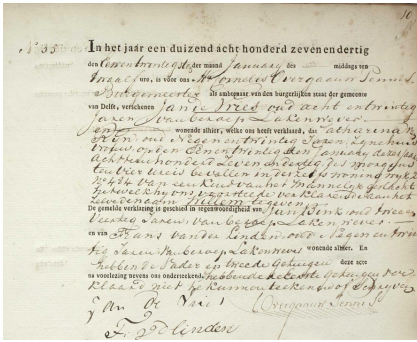 10
N. 35
In het jaar een duizend acht honderd zevenendertig
den Eenentwintigsten der maand January des middags ten
Twaalf ure, is voor ons Mr Cornelis Overgaauw Pennis
Burgemeester als ambtenaar van den burgerlijken staat der gemeente
van Delft, verschenen Jan de Vries oud acht entwintig
Jaren van beroep Lakenwever
wonende alhier, welke ons heeft verklaard, dat Catharina
Rijn oud Negenentwintig Jaren Zijne huis
vrouw, op den Eenentwintigsten January dezes Jaars
Achttienhonderd Zevenendertig des morgens
ten vier ure is bevallen in derzelver woning wijk 2
No 424 van een kind van het Mannelijk geslacht
hetwelk hij ons vertoonde verklarende aan het
zelve de naam Willem te geven
De gemelde verklaring is geschied in tegenwoordigheid van Jan Bink oud twee en
Veertig Jaren van beroep Lakenwever
en van Frans van der Linden oud Negen en twin
tig Jaren van beroep Lakenwever wonende alhier. En
hebbende Vader en tweede Getuigen deze acte
na voorlezing nevens ons onderteekend, hebbende de eerste getuigen ver
klaard niet te kunnen teekenen of schrijven
J an De Vries
COvergaauw Pennis
F v d linden